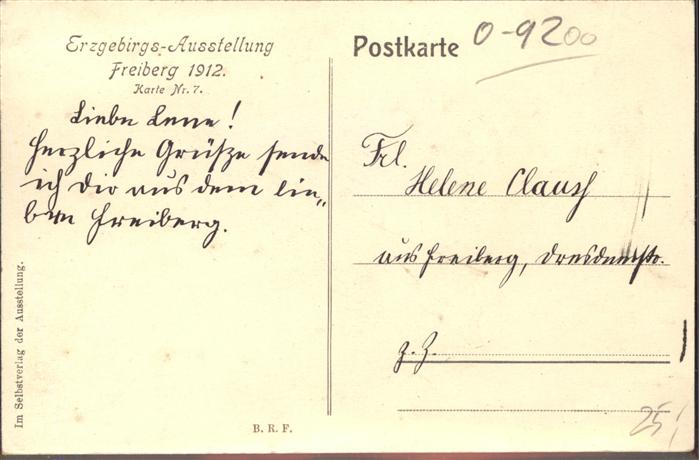 Erzgebirgs-Ausstellung
Freiberg 1912.
Karte Nr. 7.
Liebe Lene!
Herzliche Grüße sende
ich Dir aus dem lie„
ben Freiberg.
Im Selbstverlag der Ausstellung.
B. R. F.
Postkarte
0-9200
Frl.
Helene Clauß
aus Freiberg, Dresdnerstr.
z. Z.
25,